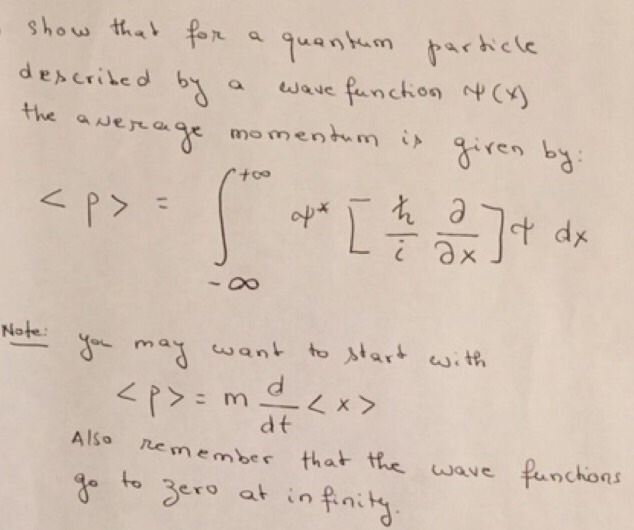 show that for a quantum particle
described by a wave function ψ(x)
the average momentum is given by:
<p> = ∫_{-∞}^{+∞} ψ* [ ħ/i ∂/∂x ] ψ dx
Note: you may want to start with
<p> = m d/dt <x>
Also remember that the wave functions
go to zero at infinity.